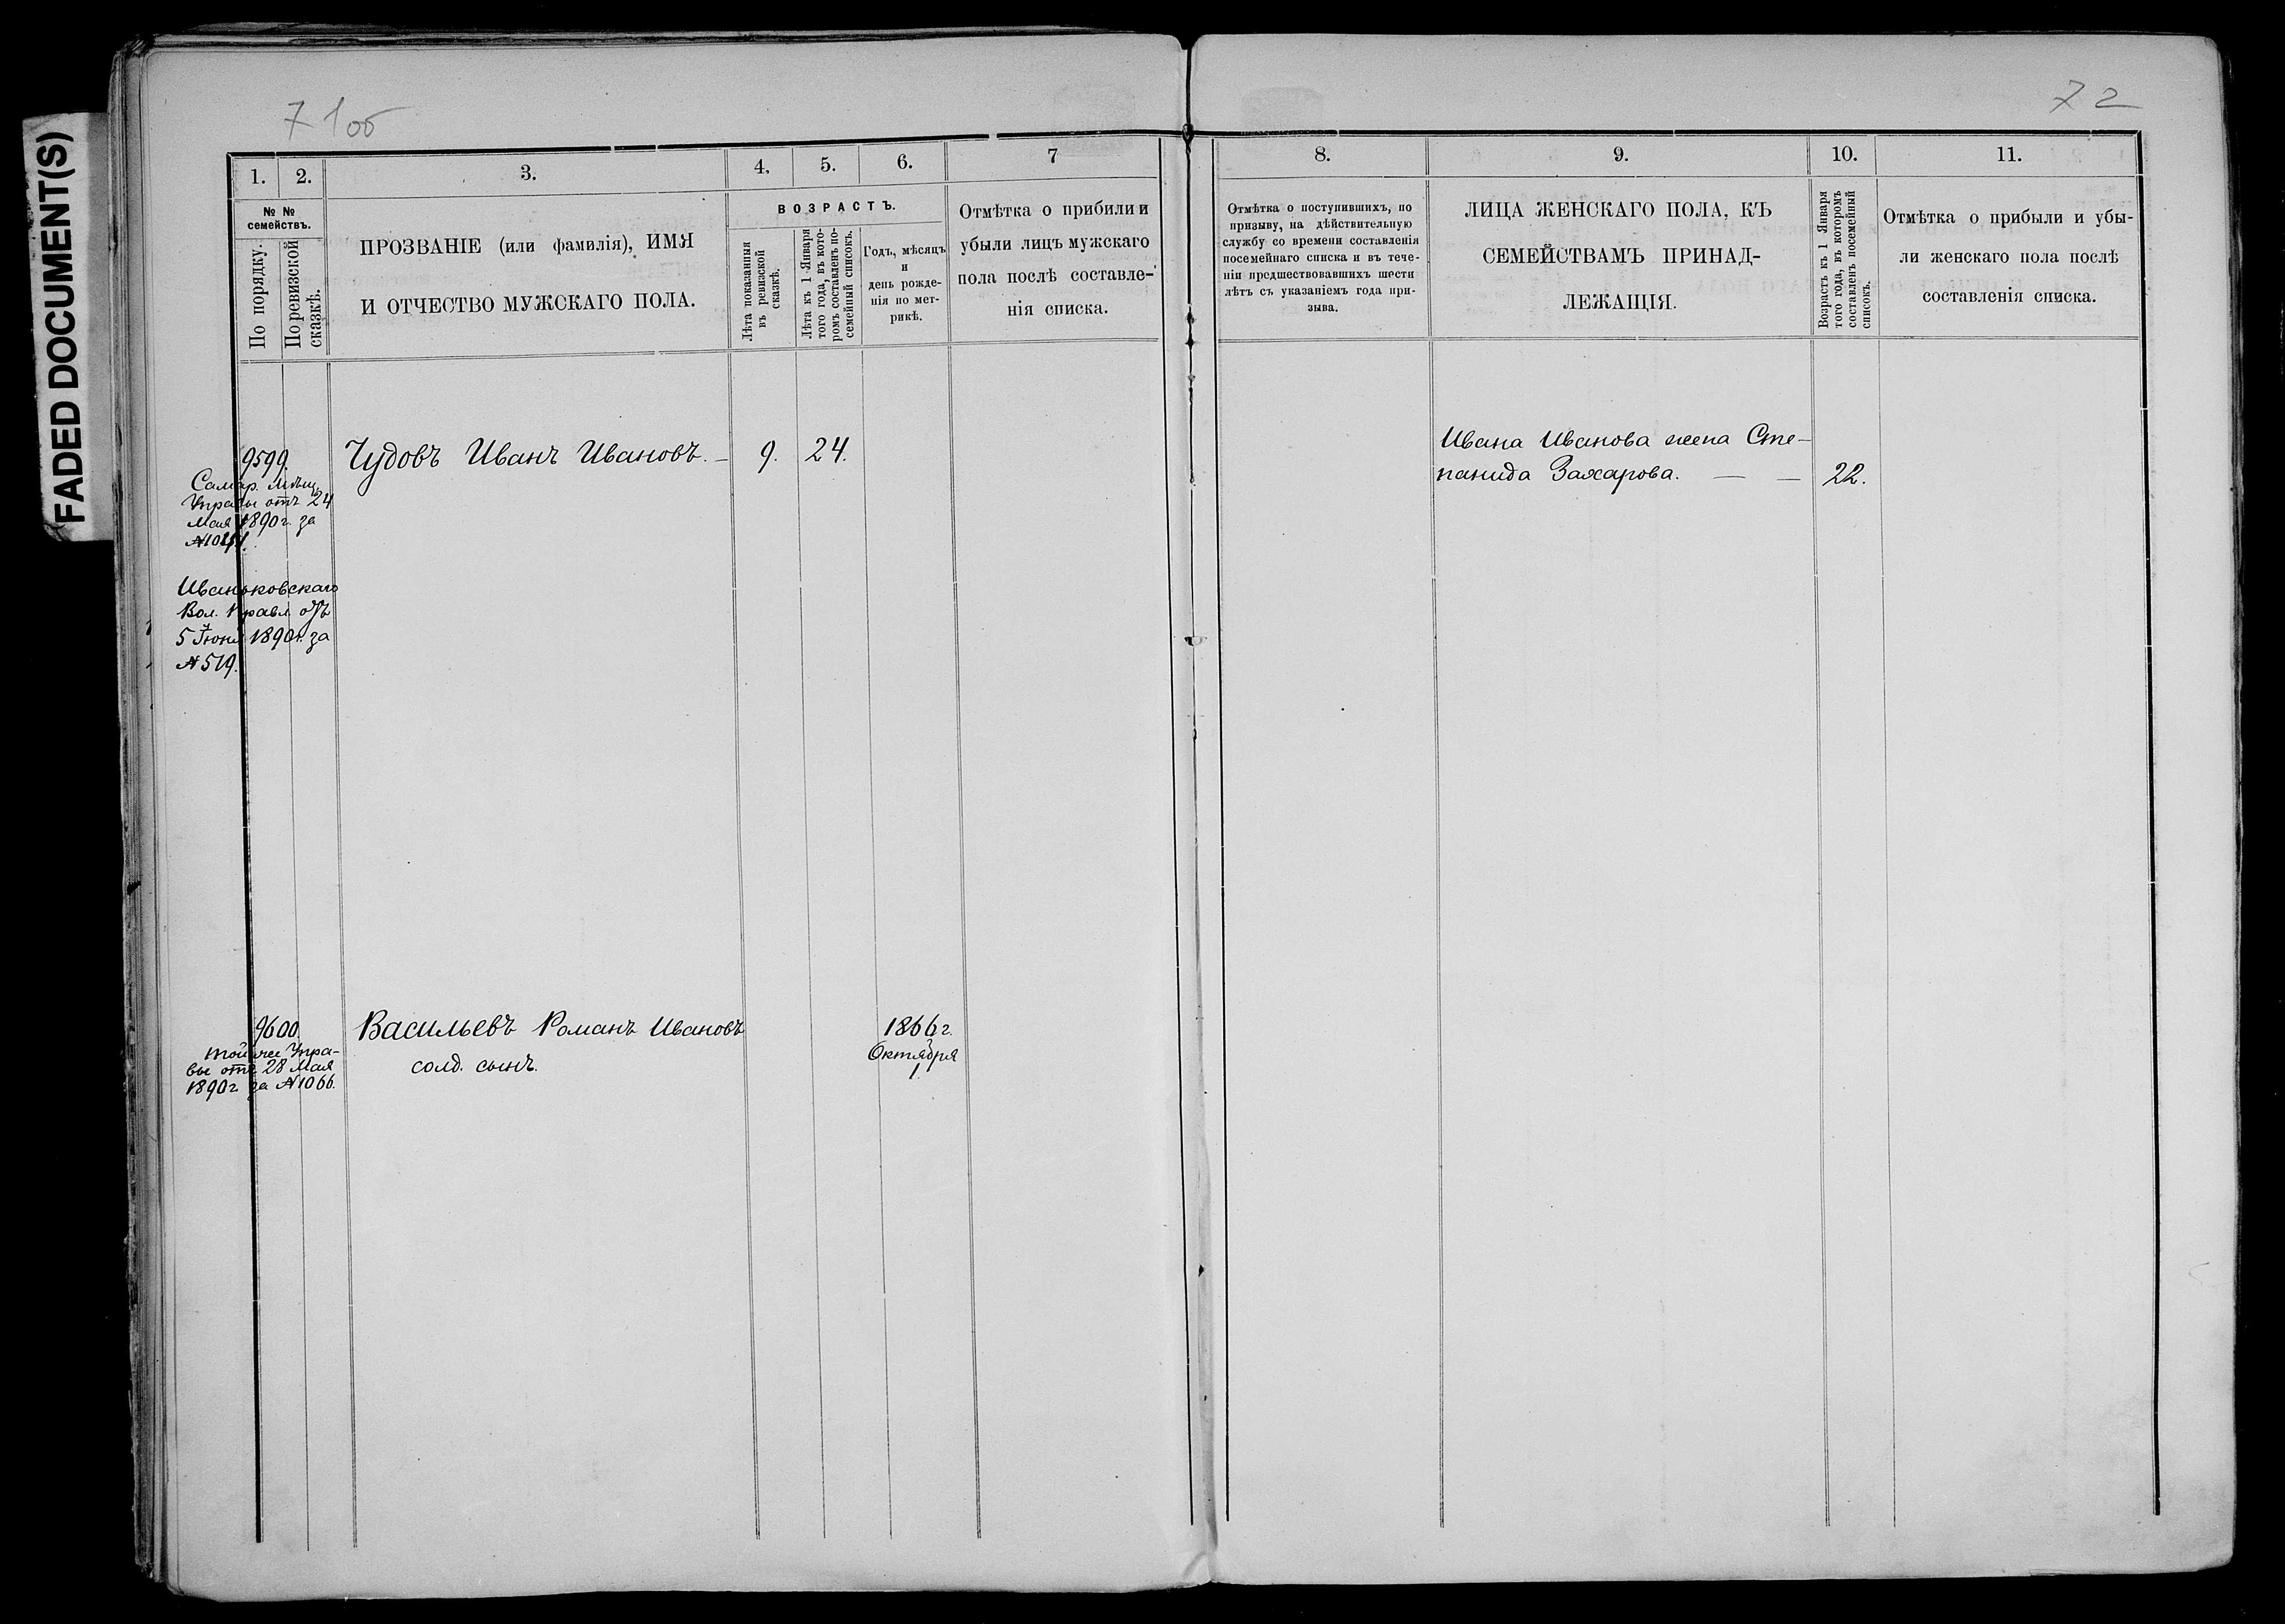 FADED DOCUMENT(S)
71об
72
1.
2.
3.
4.
5.
6.
7
8.
9.
10.
11.
№ №
семействъ.
По порядку.
По ревизской
сказкѣ.
ПРОЗВАНІЕ (или фамилія), ИМЯ
И ОТЧЕСТВО МУЖСКАГО ПОЛА.
ВОЗРАСТЪ.
Лѣта показанныя
въ ревизской
сказкѣ.
Лѣта къ 1 Января
того года, въ кото-
ромъ составленъ по-
семейный списокъ.
Годъ, мѣсяцъ
и
день рожде-
нія по мет-
рикѣ.
Отмѣтка о прибили и
убыли лицъ мужскаго
пола послѣ составле-
нія списка.
Отмѣтка о поступившихъ, по
призыву, на дѣйствительную
службу со времени составленія
посемейнаго списка и въ тече-
ніи предшествовавшихъ шести
лѣтъ съ указаніемъ года при-
зыва.
ЛИЦА ЖЕНСКАГО ПОЛА, КЪ
СЕМЕЙСТВАМЪ ПРИНАД-
ЛЕЖАЩІЯ.
Возрастъ къ 1 Января
того года, въ которомъ
составленъ посемейный
списокъ.
Отмѣтка о прибыли и убы-
ли женскаго пола послѣ
составленія списка.
9599. Чудовъ Иванъ Ивановъ. — 9. 24.
Самар. Мѣщ.
Управы отъ 24
Мая 1890 г. за
Иваньковскаго
Вол. Правл. отъ
5 Іюня 1890 г. за
№ 519.
Ивана Иванова жена Сте-
панида Захарова. — — 22.
9600. Васильевъ Романъ Ивановъ 1866 г.
солд. сынъ. Октября
1.
той же Упра-
вы отъ 28 Мая
1890 г. за № 1066.